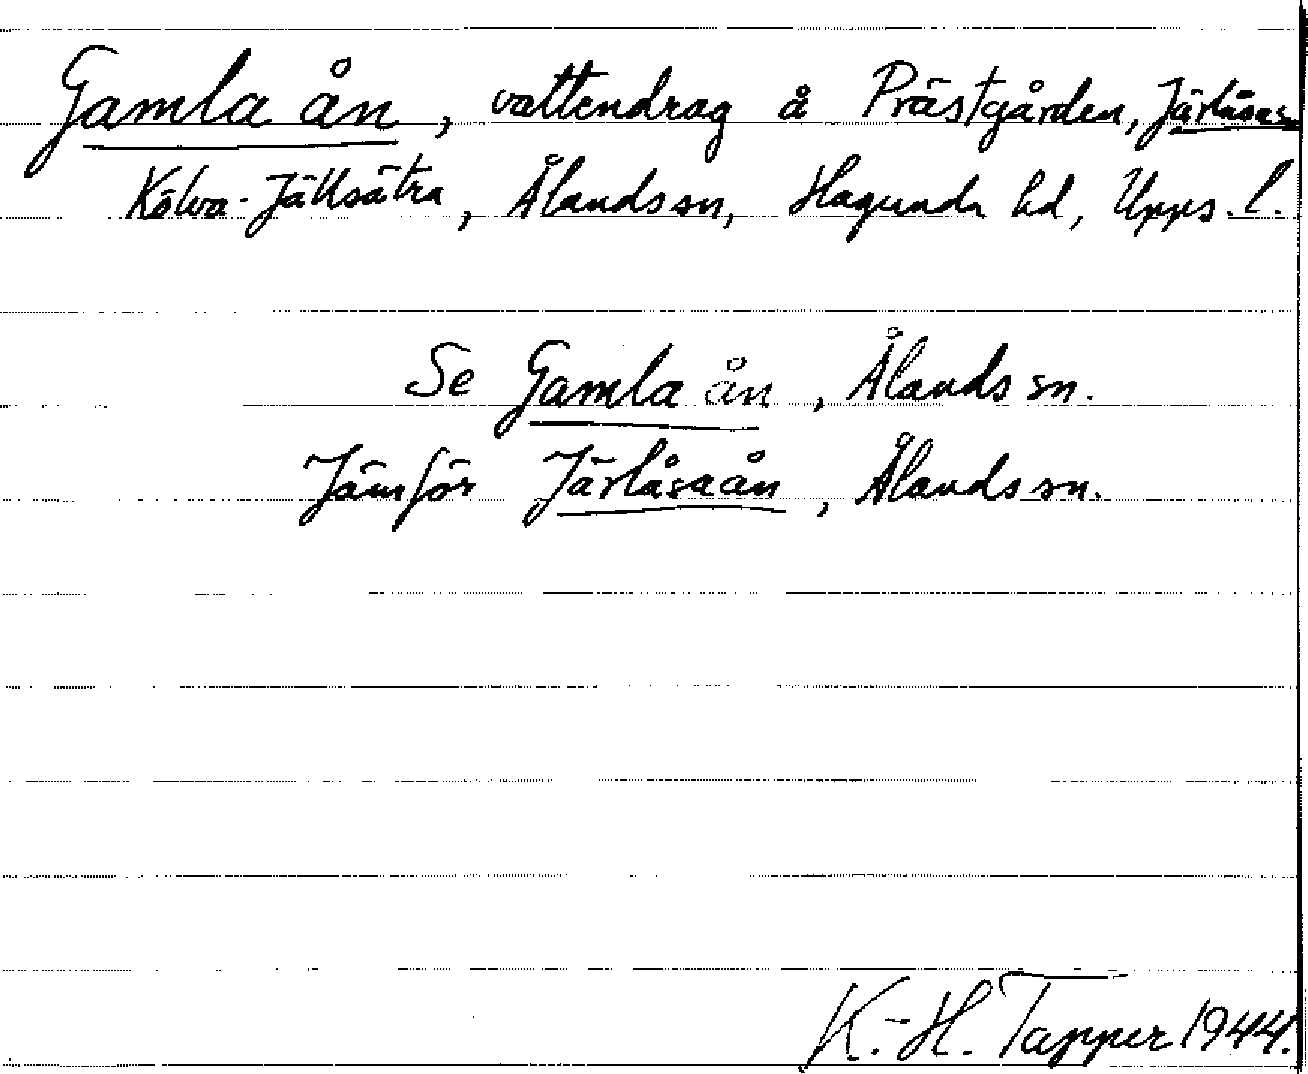 Gamla ån, vattendrag å Prästgården, Järlåsa sn
Kölva-Jällsätra, Ålands sn, Hagunda hd, Upps. l.
Se Gamla ån, Ålands sn.
Jämför Järlåsaån, Ålands sn.
K.-H. Tapper 1944.